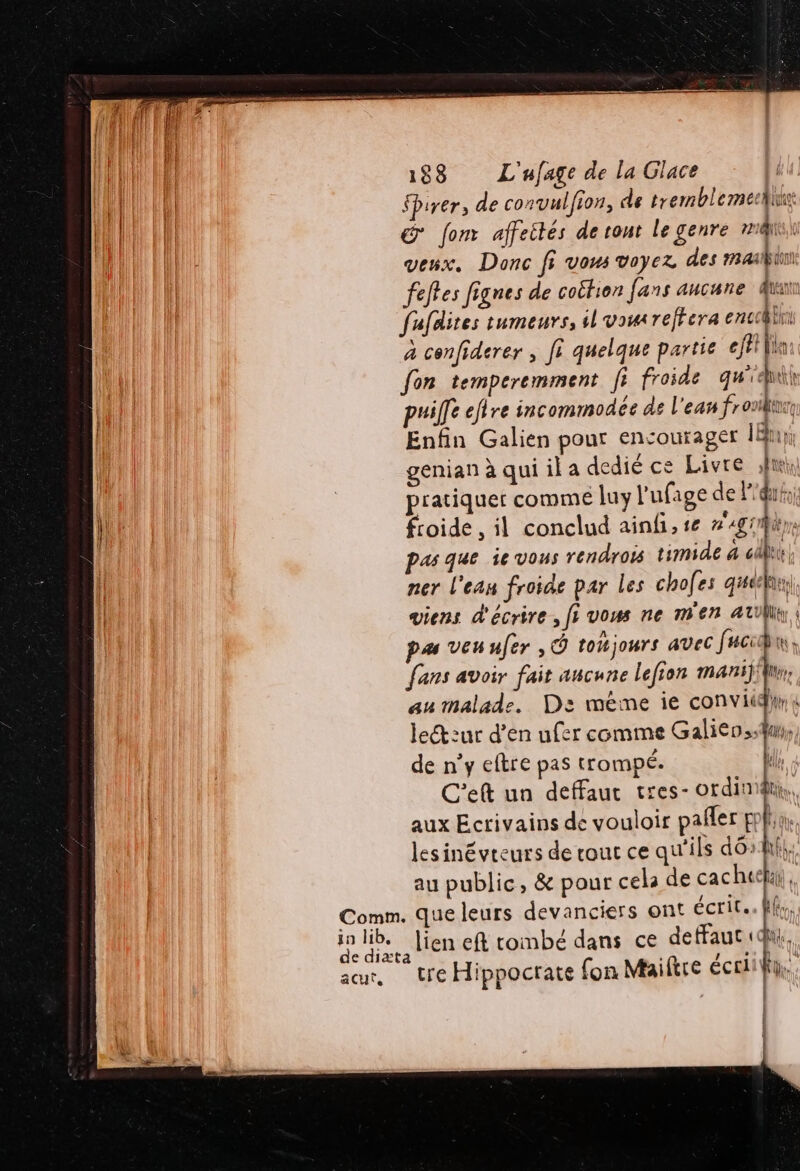 188 L'uſage de la Glace
ſpirer, de convulſion, de
& ſont affectés de tout le genre
veux. Donc ſi vous voyez des
feſtes ſignes de coction ſans aucune
ſuſdites tumeurs, il vous reſtera
à conſiderer, ſi quelque partie
ſon temperemment ſi froide
puiſſe eſtre incommodée de l'eau
Enfin Galien pour encourager
genian à qui il a dedié ce Livre
pratiquer comme luy l'uſage de
froide, il conclud ainſi, ie
pas que ie vous rendrois timide à
ner l'eau froide par les choſes
viens d'écrire, ſi vous ne m'en
pas veu uſer, & toûjours avec
ſans avoir fait aucune leſion
au malade. De même ie
lecteur d'en uſer comme
de n'y eſtre pas trompé.
C'eſt un deffaut tres-
aux Ecrivains de vouloir paſſer
les inévteurs de tout ce qu'ils
au public, & pour cela de
Comm. que leurs devanciers ont écrit.
in lib. lien eſt tombé dans ce deffaut
de diæta
acut. tre Hippocrate ſon Maiſtre